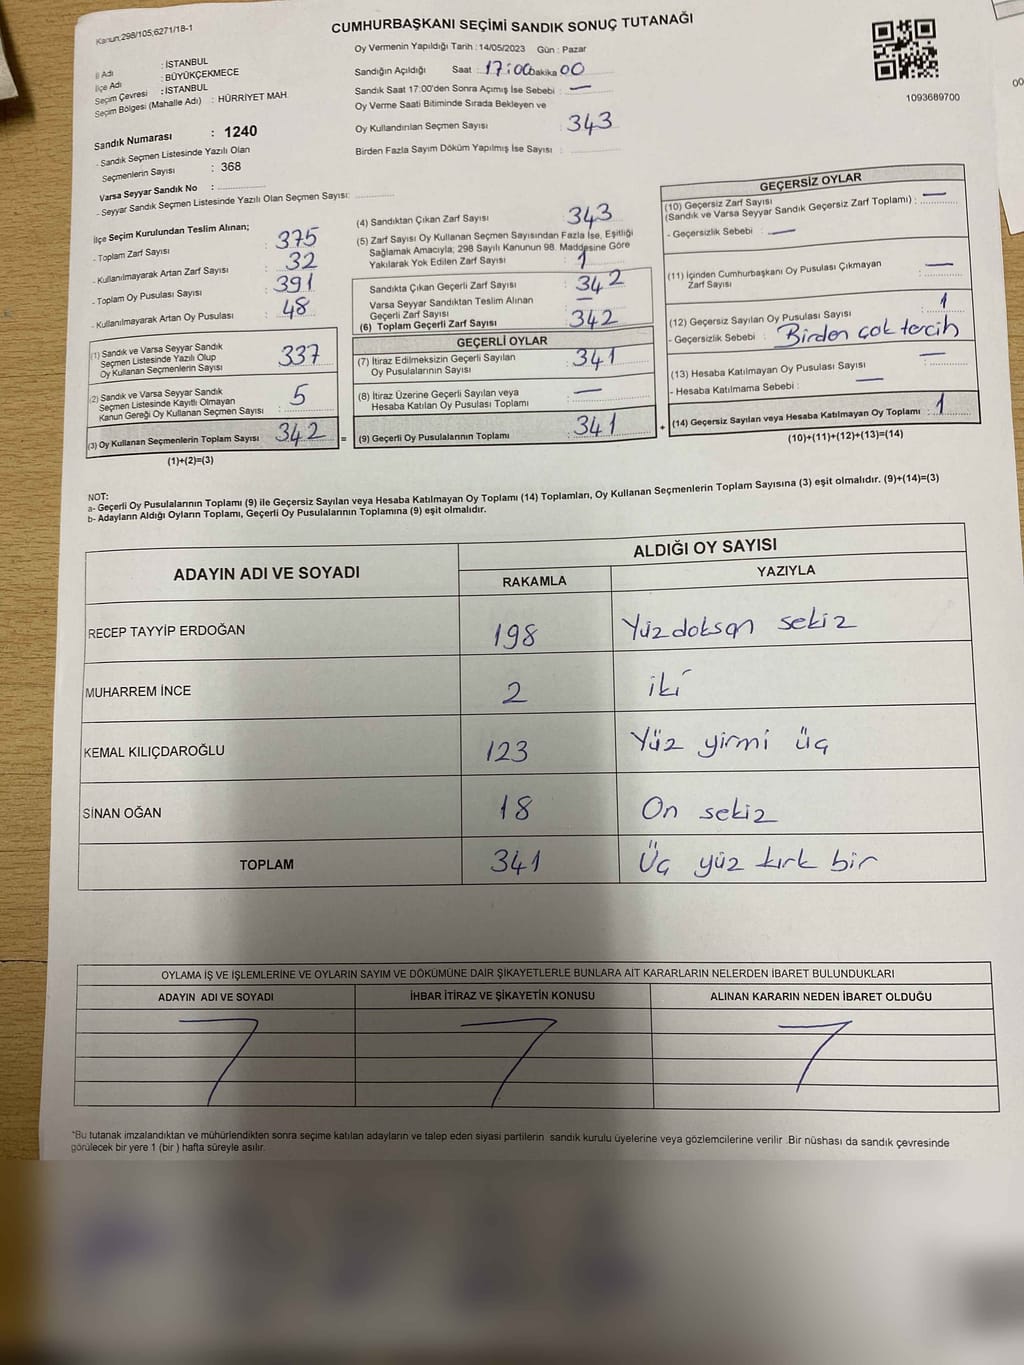 Kanun;298/105;6271/18-1
CUMHURBAŞKANI SEÇİMİ SANDIK SONUÇ TUTANAĞI
İl Adı : İSTANBUL
İlçe Adı : BÜYÜKÇEKMECE
Seçim Çevresi : İSTANBUL
Seçim Bölgesi (Mahalle Adı) : HÜRRİYET MAH.
Oy Vermenin Yapıldığı Tarih : 14/05/2023 Gün : Pazar
Sandığın Açıldığı Saat : 17:00 Dakika 00
Sandık Saat 17:00'den Sonra Açımış İse Sebebi : —
Oy Verme Saati Bitiminde Sırada Bekleyen ve
Oy Kullandırılan Seçmen Sayısı : 343
Birden Fazla Sayım Döküm Yapılmış İse Sayısı :
1093689700
Sandık Numarası : 1240
- Sandık Seçmen Listesinde Yazılı Olan
Seçmenlerin Sayısı : 368
Varsa Seyyar Sandık No :
- Seyyar Sandık Seçmen Listesinde Yazılı Olan Seçmen Sayısı:
İlçe Seçim Kurulundan Teslim Alınan;
- Toplam Zarf Sayısı : 375
- Kullanılmayarak Artan Zarf Sayısı : 32
- Toplam Oy Pusulası Sayısı : 391
- Kullanılmayarak Artan Oy Pusulası : 48
(1) Sandık ve Varsa Seyyar Sandık
Seçmen Listesinde Yazılı Olup
Oy Kullanan Seçmenlerin Sayısı : 337
(2) Sandık ve Varsa Seyyar Sandık
Seçmen Listesinde Kayıtlı Olmayan
Kanun Gereği Oy Kullanan Seçmen Sayısı : 5
(3) Oy Kullanan Seçmenlerin Toplam Sayısı : 342 =
(1)+(2)=(3)
(4) Sandıktan Çıkan Zarf Sayısı : 343
(5) Zarf Sayısı Oy Kullanan Seçmen Sayısından Fazla İse, Eşitliği
Sağlamak Amacıyla; 298 Sayılı Kanunun 98. Maddesine Göre
Yakılarak Yok Edilen Zarf Sayısı : 1
Sandıkta Çıkan Geçerli Zarf Sayısı : 342
Varsa Seyyar Sandıktan Teslim Alınan
Geçerli Zarf Sayısı : —
(6) Toplam Geçerli Zarf Sayısı : 342
GEÇERLİ OYLAR
(7) İtiraz Edilmeksizin Geçerli Sayılan
Oy Pusulalarının Sayısı : 341
(8) İtiraz Üzerine Geçerli Sayılan veya
Hesaba Katılan Oy Pusulası Toplamı : —
(9) Geçerli Oy Pusulalarının Toplamı : 341 +
GEÇERSİZ OYLAR
(10) Geçersiz Zarf Sayısı
(Sandık ve Varsa Seyyar Sandık Geçersiz Zarf Toplamı) : —
- Geçersizlik Sebebi : —
(11) İçinden Cumhurbaşkanı Oy Pusulası Çıkmayan
Zarf Sayısı : —
(12) Geçersiz Sayılan Oy Pusulası Sayısı : 1
- Geçersizlik Sebebi : Birden çok tercih
(13) Hesaba Katılmayan Oy Pusulası Sayısı : —
- Hesaba Katılmama Sebebi : —
(14) Geçersiz Sayılan veya Hesaba Katılmayan Oy Toplamı : 1
(10)+(11)+(12)+(13)=(14)
NOT:
a- Geçerli Oy Pusulalarının Toplamı (9) ile Geçersiz Sayılan veya Hesaba Katılmayan Oy Toplamı (14) Toplamları, Oy Kullanan Seçmenlerin Toplam Sayısına (3) eşit olmalıdır. (9)+(14)=(3)
b- Adayların Aldığı Oyların Toplamı, Geçerli Oy Pusulalarının Toplamına (9) eşit olmalıdır.
ADAYIN ADI VE SOYADI ALDIĞI OY SAYISI
RAKAMLA YAZIYLA
RECEP TAYYİP ERDOĞAN 198 Yüz doksan sekiz
MUHARREM İNCE 2 iki
KEMAL KILIÇDAROĞLU 123 Yüz yirmi üç
SİNAN OĞAN 18 On sekiz
TOPLAM 341 Üç yüz kırk bir
OYLAMA İŞ VE İŞLEMLERİNE VE OYLARIN SAYIM VE DÖKÜMÜNE DAİR ŞİKAYETLERLE BUNLARA AİT KARARLARIN NELERDEN İBARET BULUNDUKLARI
ADAYIN ADI VE SOYADI İHBAR İTİRAZ VE ŞİKAYETİN KONUSU ALINAN KARARIN NEDEN İBARET OLDUĞU
*Bu tutanak imzalandıktan ve mühürlendikten sonra seçime katılan adayların ve talep eden siyasi partilerin sandık kurulu üyelerine veya gözlemcilerine verilir .Bir nüshası da sandık çevresinde
görülecek bir yere 1 (bir ) hafta süreyle asılır.